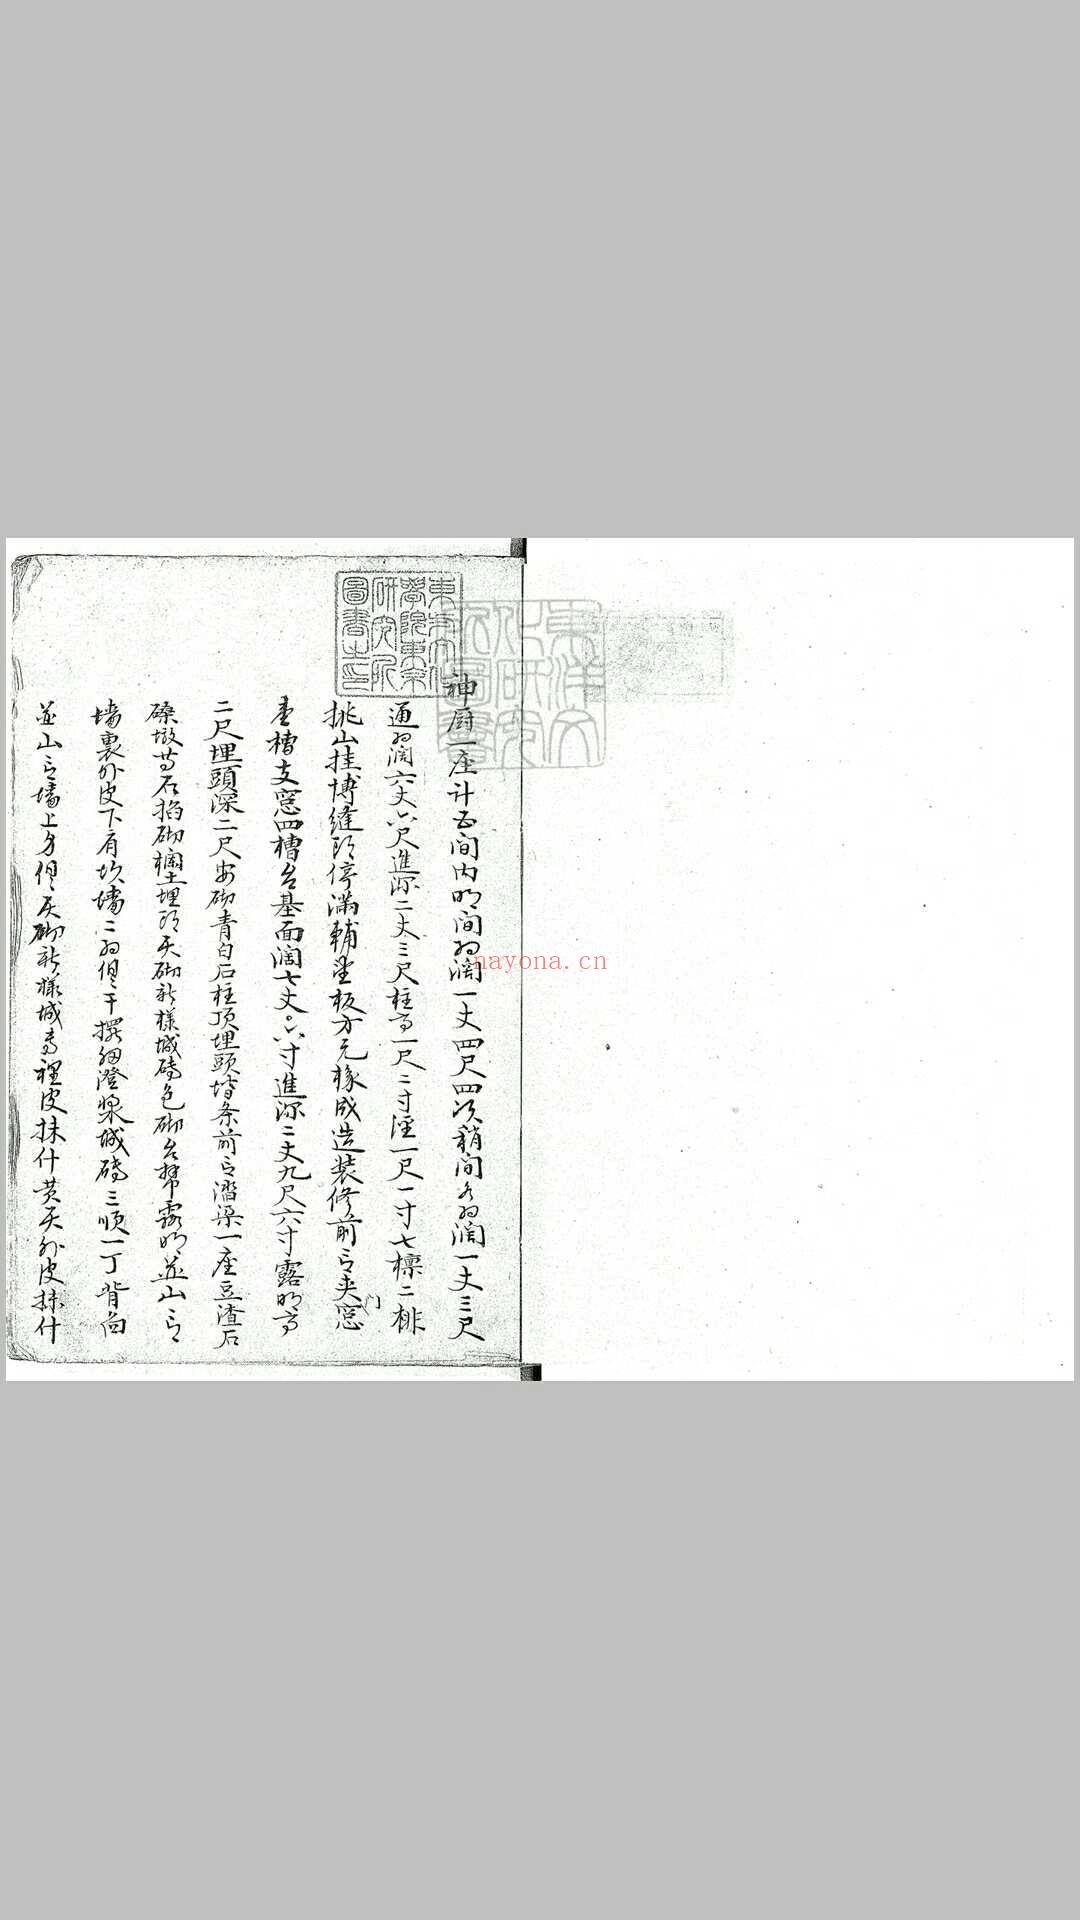 神厨一座计五间内明间面阔一丈四尺四次稍间各面阔一丈三尺
通面阔六丈六尺進深二丈三尺柱高一尺二寸徑一尺一寸七檩二桃
挑山挂博缝頭停滿鋪望板方元椽成造装修前面夹窓门
槽支窓四槽台基面阔七丈〇六寸進深二丈九尺六寸露明高
二尺埋頭深二尺安砌青白石柱顶埋頭堦条前面踏跺一座豆渣石
磉墩等石掐砌欄土埋頭灰砌新樣城磚包砌台幫露明並山面
墙裏外皮下肩坎墙二面俱干摆细澄漿城磚三顺一丁背面
並山面墙上身俱灰砌新樣城磚裡皮抹什黄灰外皮抹什
東方文化學院東京研究所圖書之印
東洋文化研究所圖書
nayona.cn